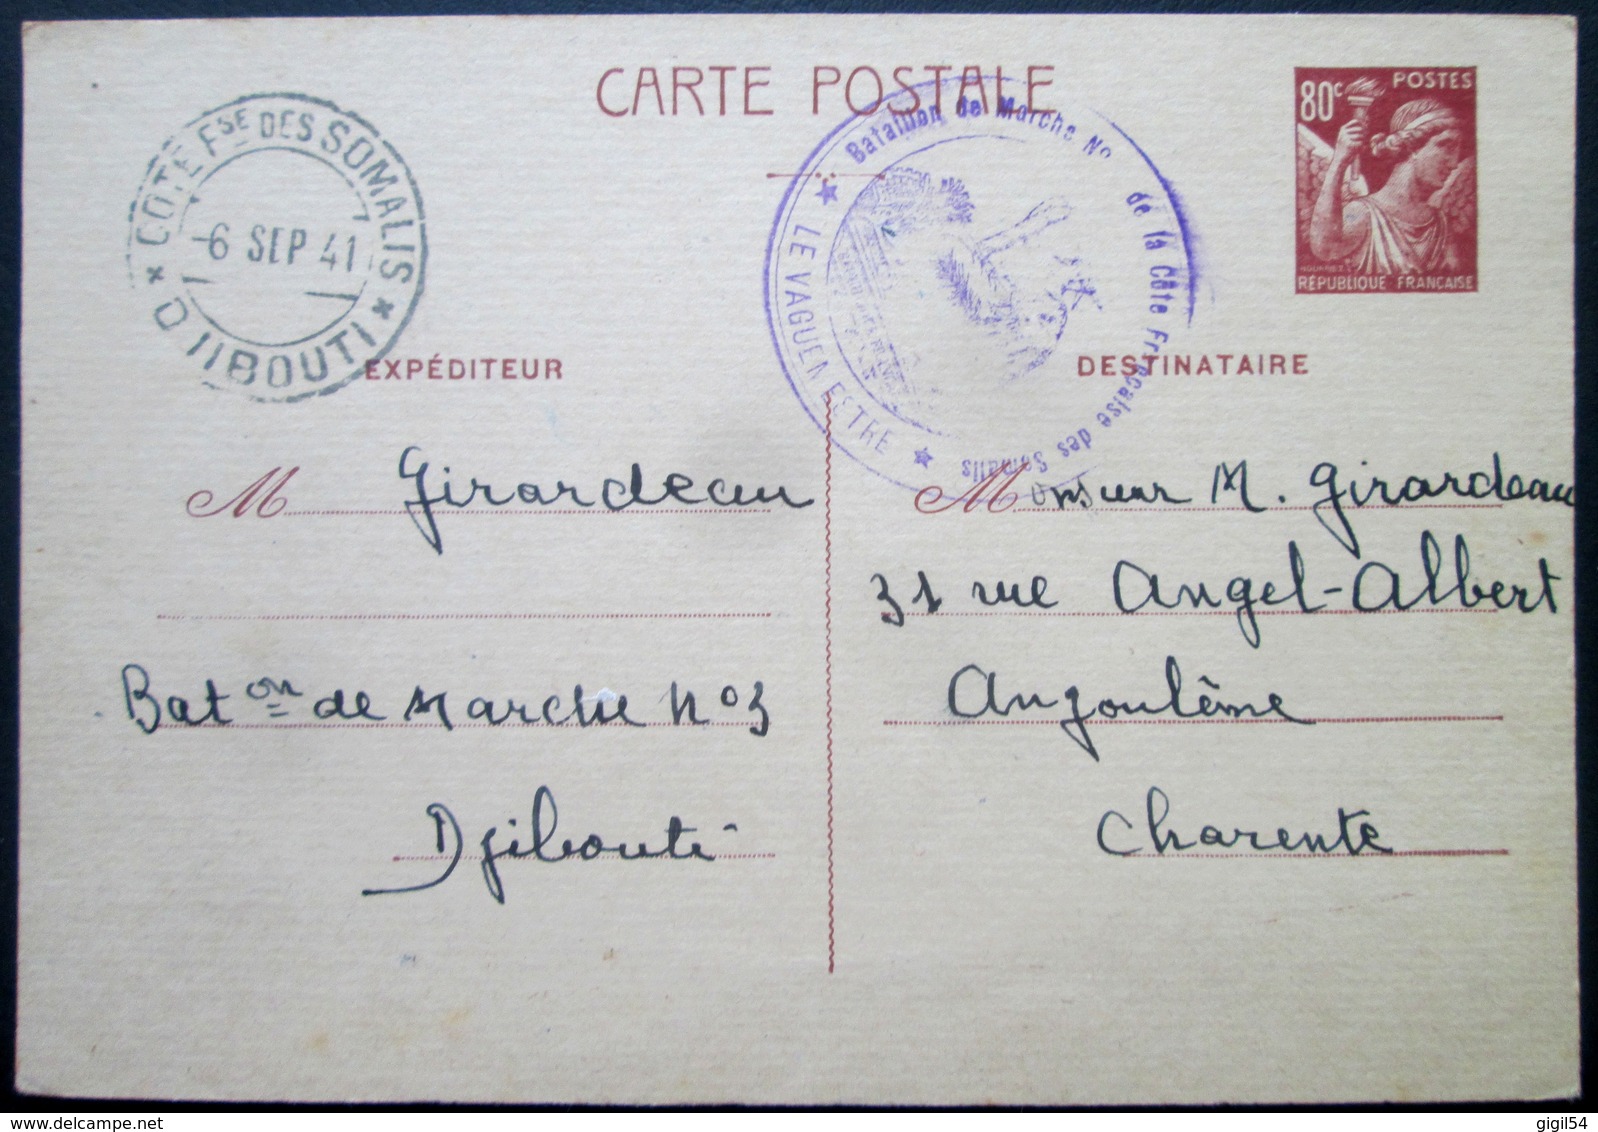 CARTE POSTALE
80c POSTES
NOURRIT.
RÉPUBLIQUE FRANÇAISE
COTE Fse DES SOMALIS
-6 SEP 41
DJIBOUTI
Bataillon de Marche No de la Côte Française des Somalis
LE VAGUEMESTRE
EXPÉDITEUR
DESTINATAIRE
M Girardeau
Baton de Marche No 3
Djibouti
Monsieur M. Girardeau
31 rue Angel-Albert
Angoulême
Charente
gigil54